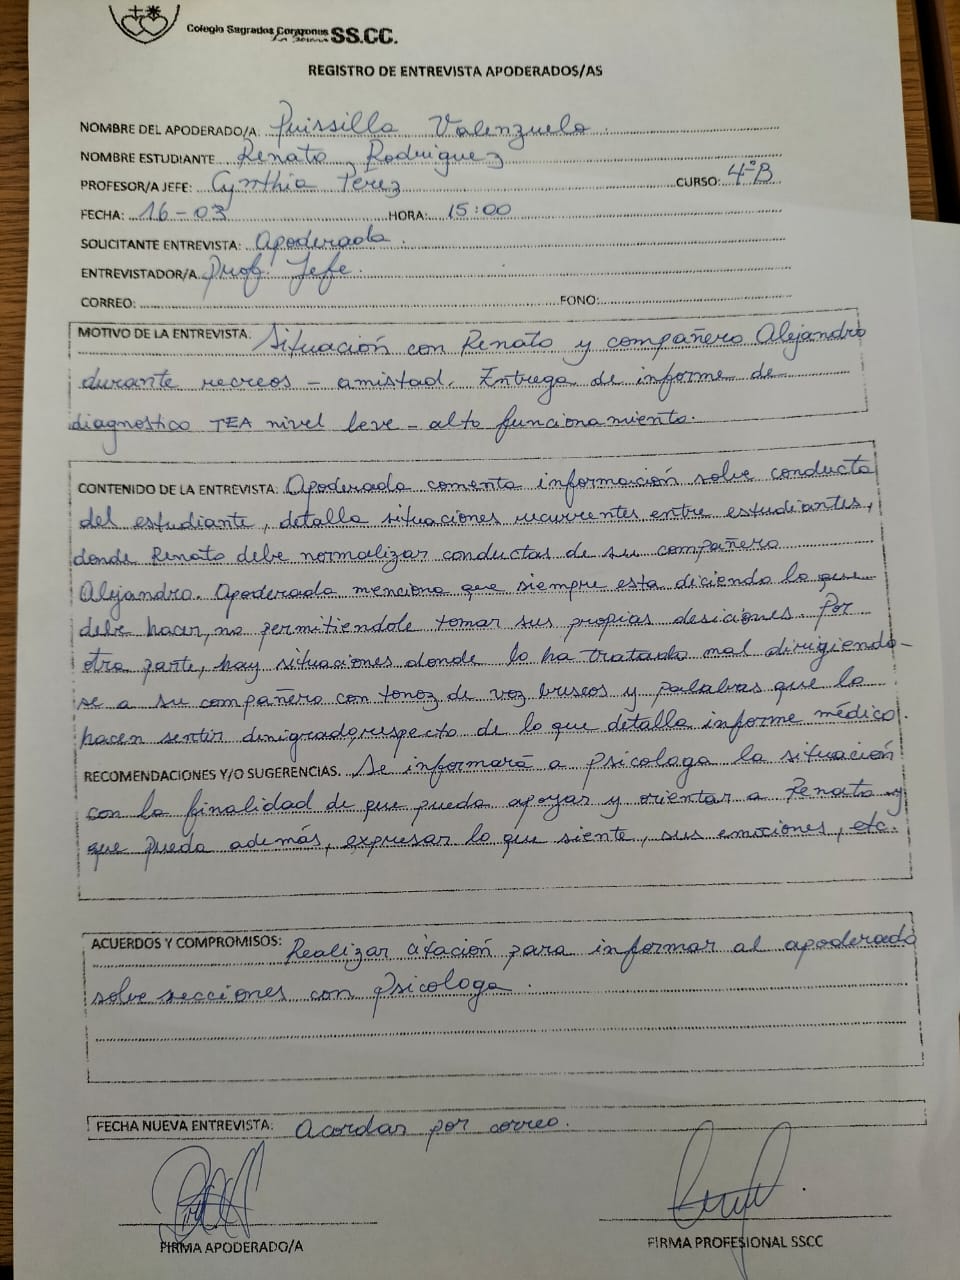 Colegio Sagrados Corazones
La Serena SS.CC.
REGISTRO DE ENTREVISTA APODERADOS/AS
NOMBRE DEL APODERADO/A: Prissilla Valenzuela.
NOMBRE ESTUDIANTE Renato Rodriguez
PROFESOR/A JEFE: Cynthia Perez CURSO: 4°B
FECHA: 16-03 HORA: 15:00
SOLICITANTE ENTREVISTA: Apoderada.
ENTREVISTADOR/A Prof. Jefe.
CORREO: FONO:
MOTIVO DE LA ENTREVISTA. Situación con Renato y compañero Alejandro
durante recreos - amistad. Entrega de informe de
diagnostico TEA nivel leve - alto funcionamiento.
CONTENIDO DE LA ENTREVISTA: Apoderada comenta información sobre conducta
del estudiante, detalla situaciones recurrentes entre estudiantes,
donde Renato debe normalizar conductas de su compañero
Alejandro. Apoderada menciona que siempre esta diciendo lo que
debe hacer, no permitiendole tomar sus propias desiciones. Por
otra parte, hay situaciones donde lo ha tratado mal dirigiendo-
se a su compañero con tonoz de voz bruscos y palabras que lo
hacen sentir denigrado, respecto de lo que detalla informe médico.
RECOMENDACIONES Y/O SUGERENCIAS. Se informará a psicologa la situación
con la finalidad de que pueda apoyar y orientar a Renato y
que pueda además, expresar lo que siente, sus emociones, etc.
ACUERDOS Y COMPROMISOS: Realizar citación para informar al apoderado
sobre secciones con Psicologa.
FECHA NUEVA ENTREVISTA: Acordar por correo.
FIRMA APODERADO/A FIRMA PROFESIONAL SSCC